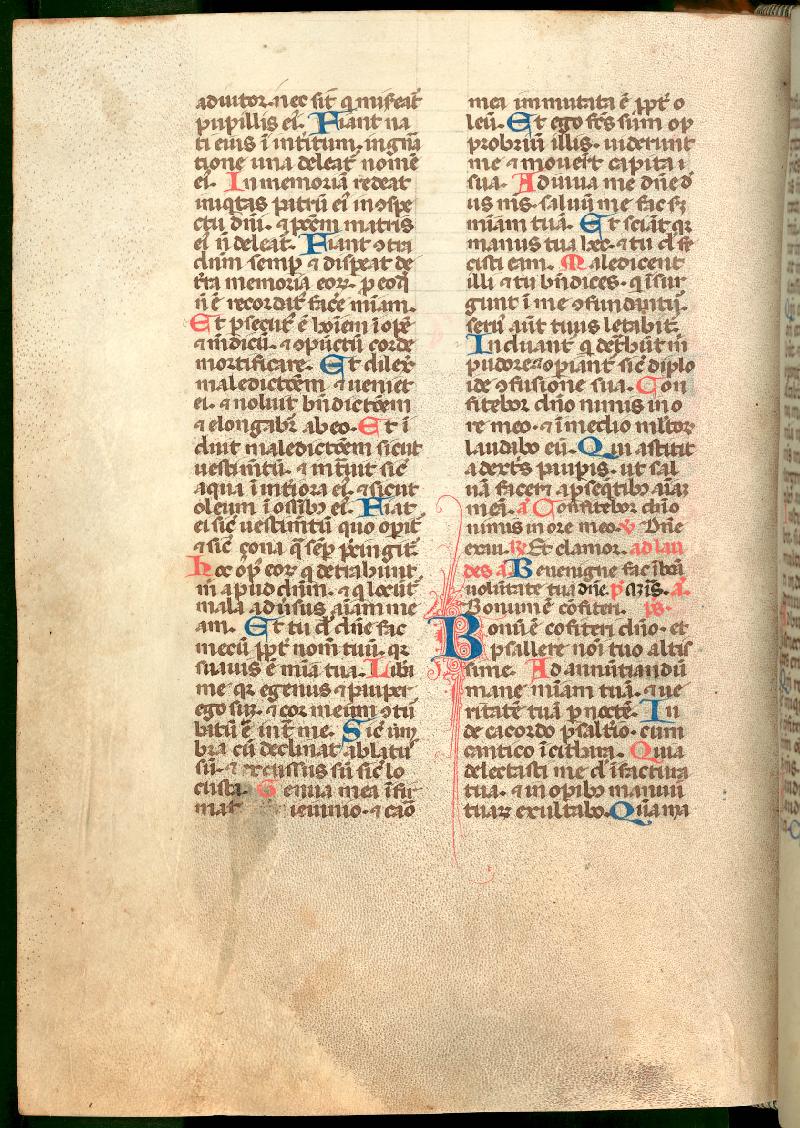 adiutor. nec sit q̇ miseat᷑
pupillis ei᷑. Fiant na
ti eius ī intitum. in gn̄a
tione una deleat᷑ nomē
ei᷑. In memoriā redeat
iniq̇tas patrū ei᷑ in ɔspe
ctu dn̄i. ⁊ pc̄cm matris
ei᷑ n̄ deleat᷑. Fiant ɔtra
dn̄m semp̲ ⁊ disp̲eat de
t̄ra memoria eoꝝ. p̲ eo q̇
n̄ ē recordat᷑ facē mīam.
Et p̲secut᷑ ē hoīem īopē
⁊ mēdicū. ⁊ ɔpūctū corde
mortificare. Et dilex᷑
maledictōem ⁊ ueniet
ei. ⁊ noluit bn̄dictōem
⁊ elongabit᷑ ab eo. Et ī
duit maledictōem sicut
uestimētū. ⁊ int̄uit sic̄
aqua ī int̄iora ei᷑. ⁊ sicut
oleum ī ossibꝫ ei᷑. Fiat
ei sic̄ uestimētū quo op̲it᷑
⁊ sic̄ çona q̄ sēp̲ p̄cingit᷑.
Hoc op᷑ eoꝝ q̇ detrahunt
m̄ apud dn̄m. ⁊ q̇ locūt᷑
mala aduīsus aīam me
am. Et tu dn̄e dn̄e fac
mecū ppt̄ nom̄ tuū. qꝛ
suauis ē mīa tua. Libā
me qꝛ egenus ⁊ paup̲
ego sū. ⁊ cor meum ɔtū
batū ē int̄ me. Sic ūm
bra cū declinat ablatᷤ
sū. ⁊ excussus sū sic̄ lo
custa. Genua mea īfir
mat ieiunio. ⁊ caro
mea immutata ē ppt̄ o
leū. Et ego fc̄s sum op
probriū illis. uiderunt
me ⁊ mouer̄t capita
sua. Adiuua me dn̄e d̄
us m̄s. saluū me fac sꝫ
mīam tuā. Et sciāt qꝛ
manus tua hec. ⁊ tu dn̄e fe
cisti eam. Maledicent
illi ⁊ tu bn̄dices. q̇ īsur
gunt ī me ɔfundāt᷑.
seruᷤ aūt tuus letabit᷑.
Induant᷑ q̇ det̄hūt m̄
pudore ⁊ op̲iant᷑ sic̄ diplo
ide ɔfusione sua. Con
fitebor dn̄o nimis in o
re meo. ⁊ ī medio mltoꝝ
laudabo eū. Qui astitit
a dext̄s paup̲is. ut sal
uā faceret a p̲seq̄tibꝫ aīaꝫ
meā. a᷑ Confitebor dn̄o
nimis in ore meo. v᷑ Dn̄e
exau. R᷑ Et clamor. ad lau
des a᷑ Benigne fac ī bōa
uolūtate tua dn̄e. a᷑.
Bonum ē cōfiteri. ps.
Bonū ē cōfiteri dn̄o. et
psallere noī tuo altis
sime. Ad annūtiandū
mane mīam tuā. ⁊ ue
ritatē tuā p̲ noctē. In
decacordo psaltīo. cum
cantico ī cithara. Quia
delectasti me dn̄e ī factura
tua. ⁊ in op̲ibꝫ manuū
tuaꝝ exultabo. Quā ma